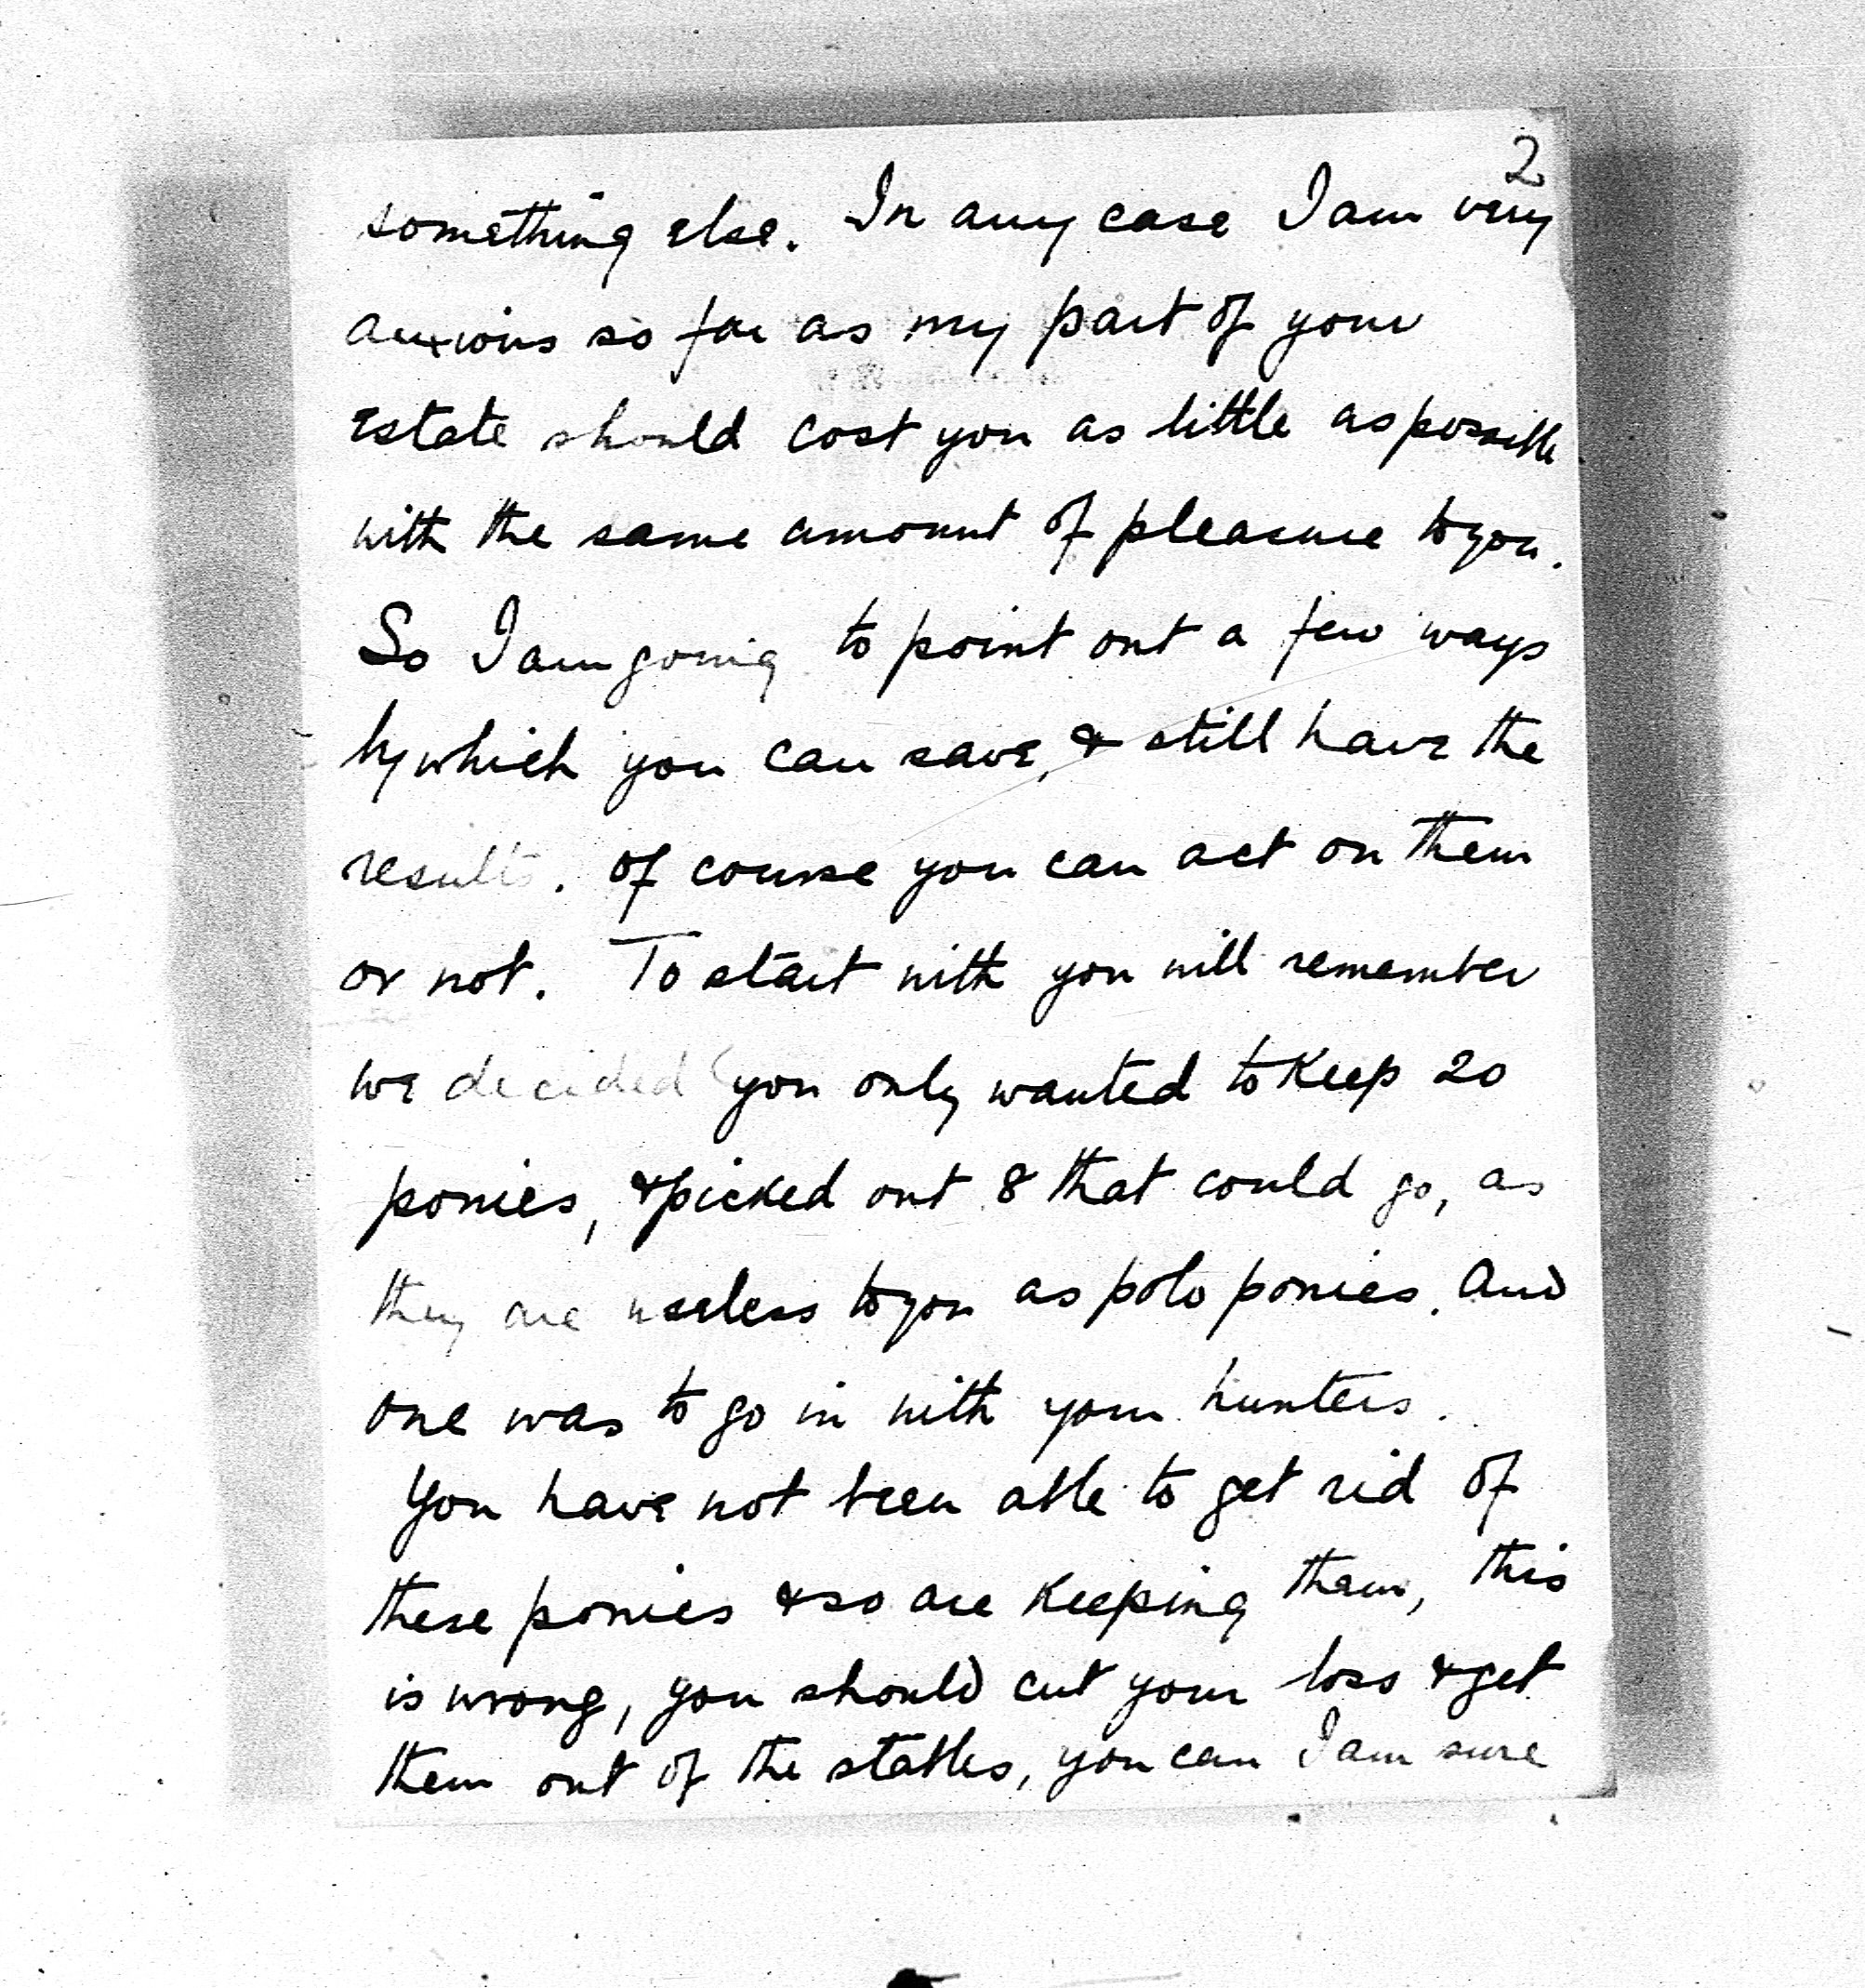 2
something else. In any case I am very
anxious so far as my part of your
Estate should cost you as little as possible
with the same amount of pleasure to you.
So I am going to point out a few ways
by which you can save, & still have the
results. Of course you can act on them
or not. To start with you will remember
we decided you only wanted to keep 20
ponies, & picked out 8 that could go, as
they are useless to you as polo ponies. And
one was to go in with your hunters.
You have not been able to get rid of
these ponies & so are keeping them, this
is wrong, you should cut your loss & get
them out of the stables, you can I am sure